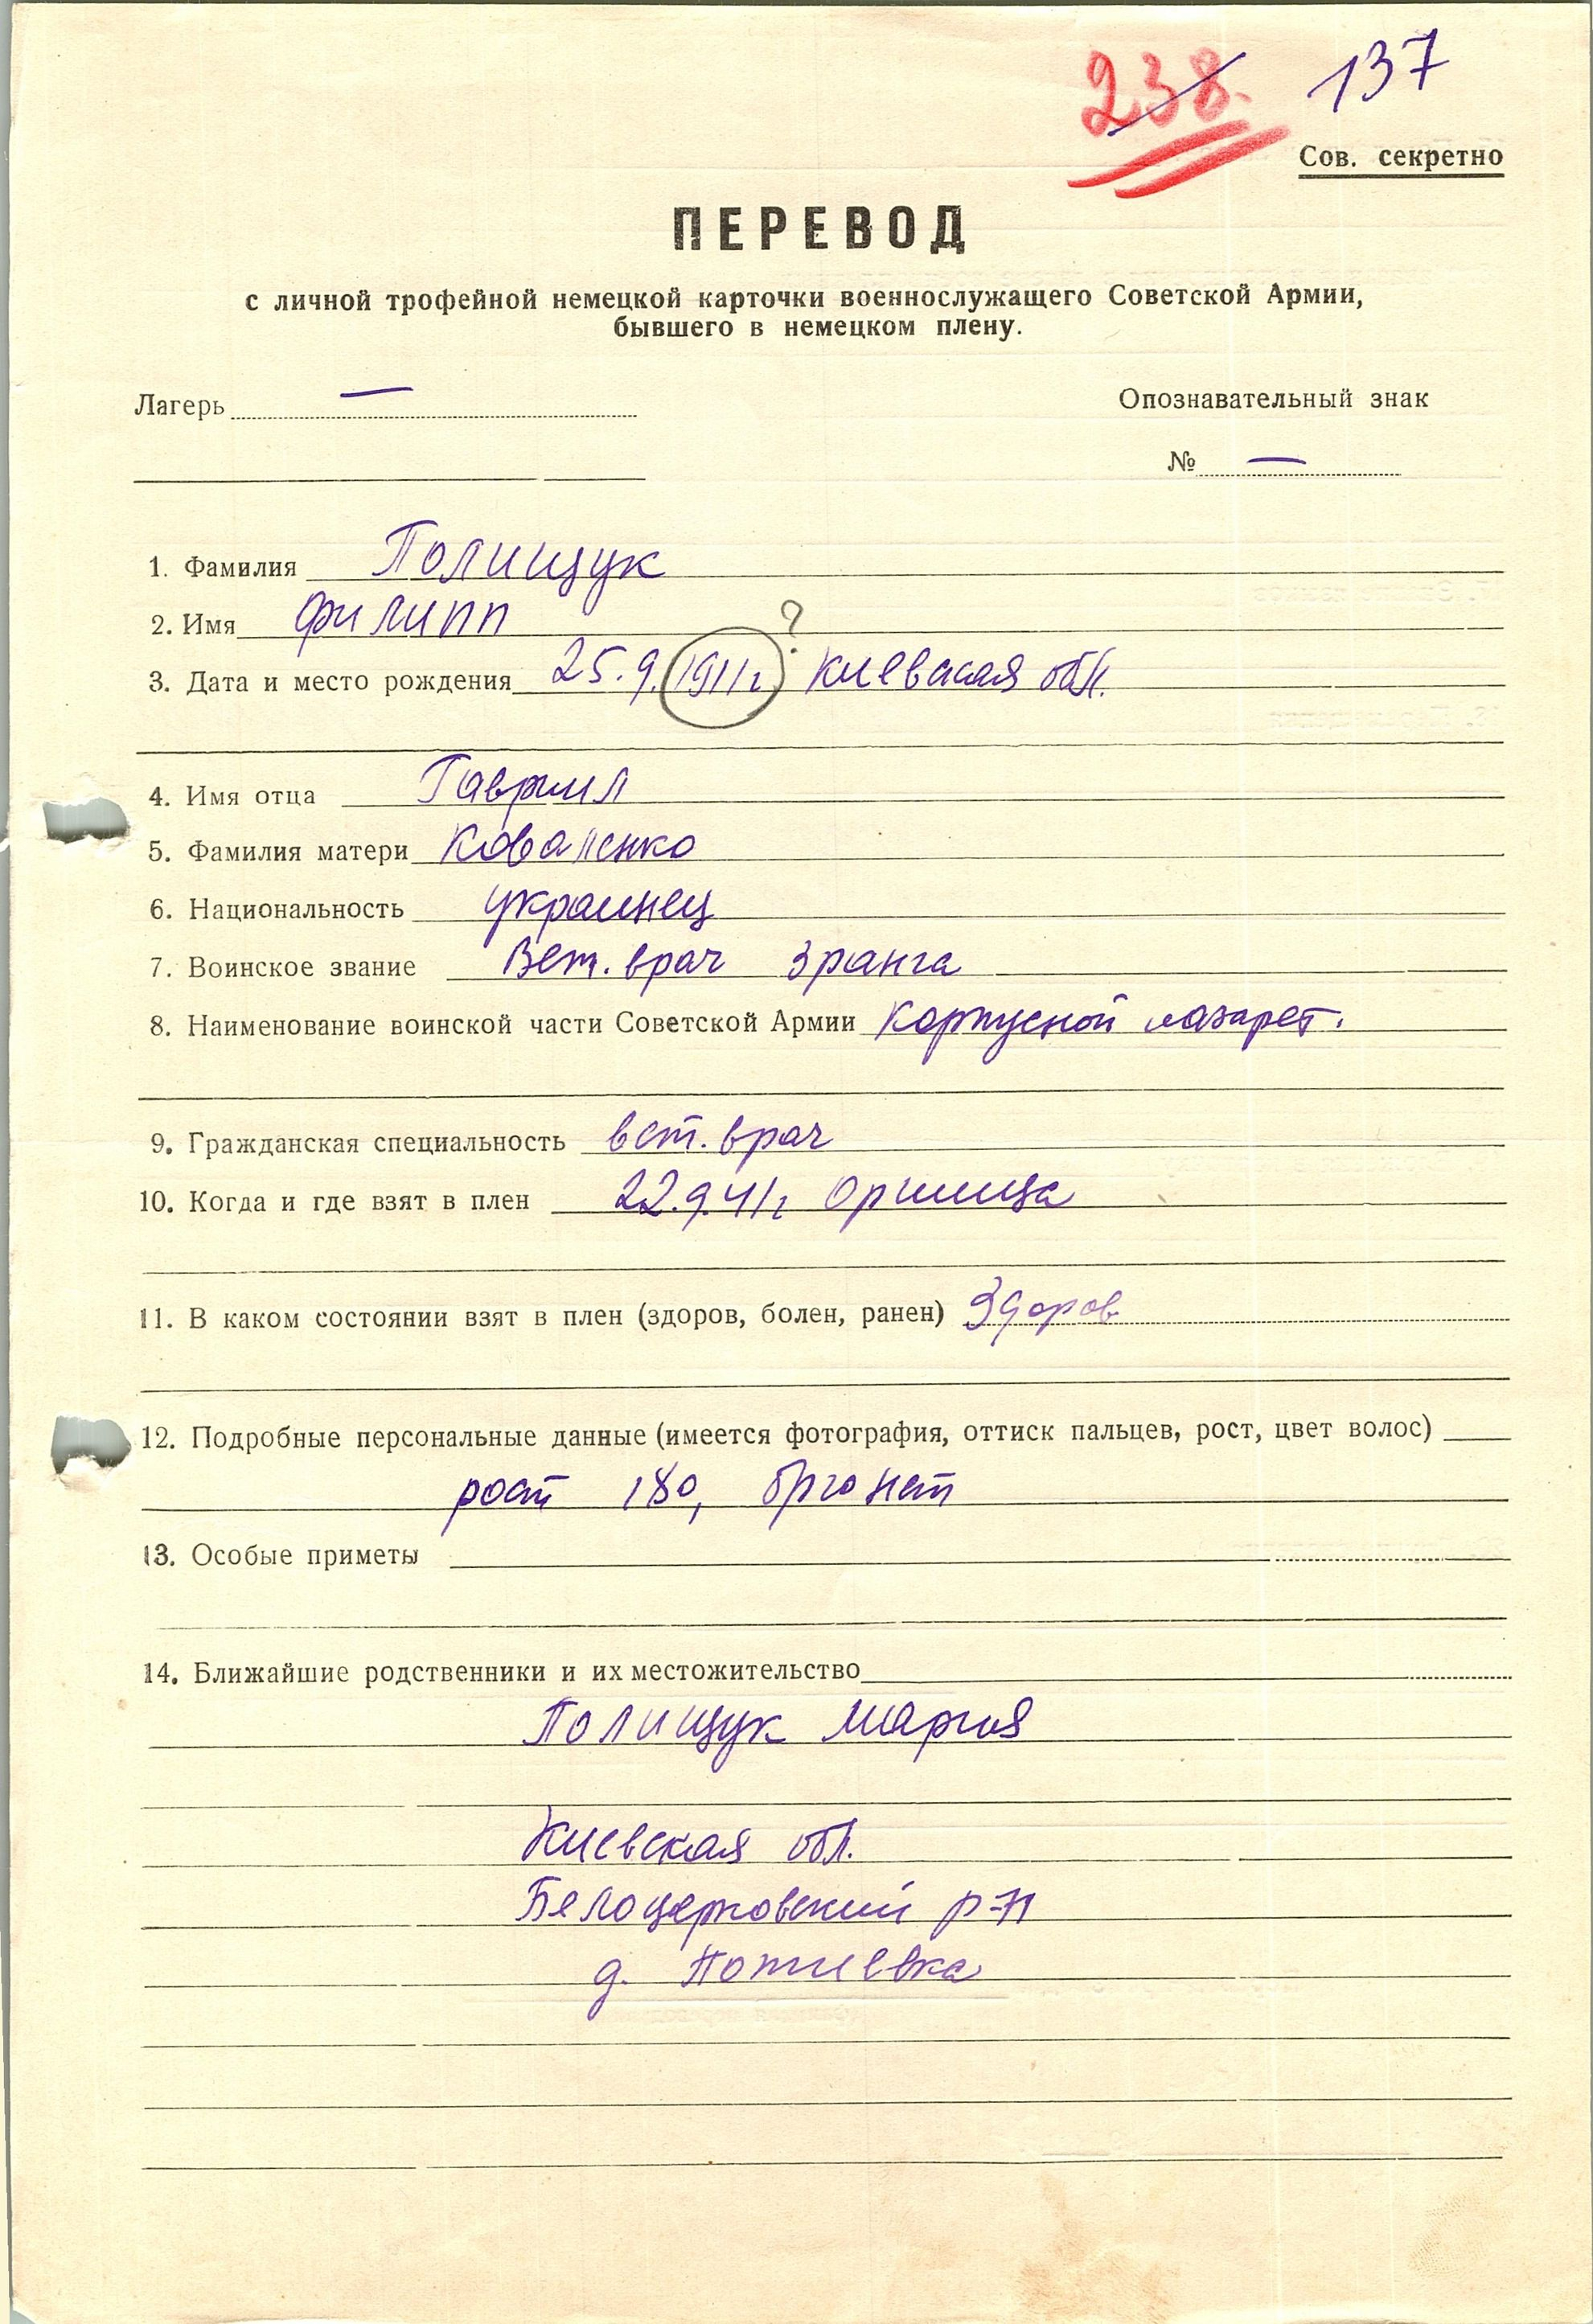 238. 137
Сов. секретно
ПЕРЕВОД
с личной трофейной немецкой карточки военнослужащего Советской Армии,
бывшего в немецком плену.
Лагерь — Опознавательный знак
№ —
1. Фамилия Полищук
2. Имя Филипп
?
3. Дата и место рождения 25.9.1911г. Киевская обл.
4. Имя отца Гаврил
5. Фамилия матери Коваленко
6. Национальность украинец
7. Воинское звание Вет. врач 3 ранга
8. Наименование воинской части Советской Армии Корпусной лазарет.
9. Гражданская специальность вет. врач
10. Когда и где взят в плен 22.9.41г Оржица
11. В каком состоянии взят в плен (здоров, болен, ранен) Здоров
12. Подробные персональные данные (имеется фотография, оттиск пальцев, рост, цвет волос)
рост 180, брюнет
13. Особые приметы
14. Ближайшие родственники и их местожительство
Полищук Мария
Киевская обл.
Белоцерковский р-н
д.